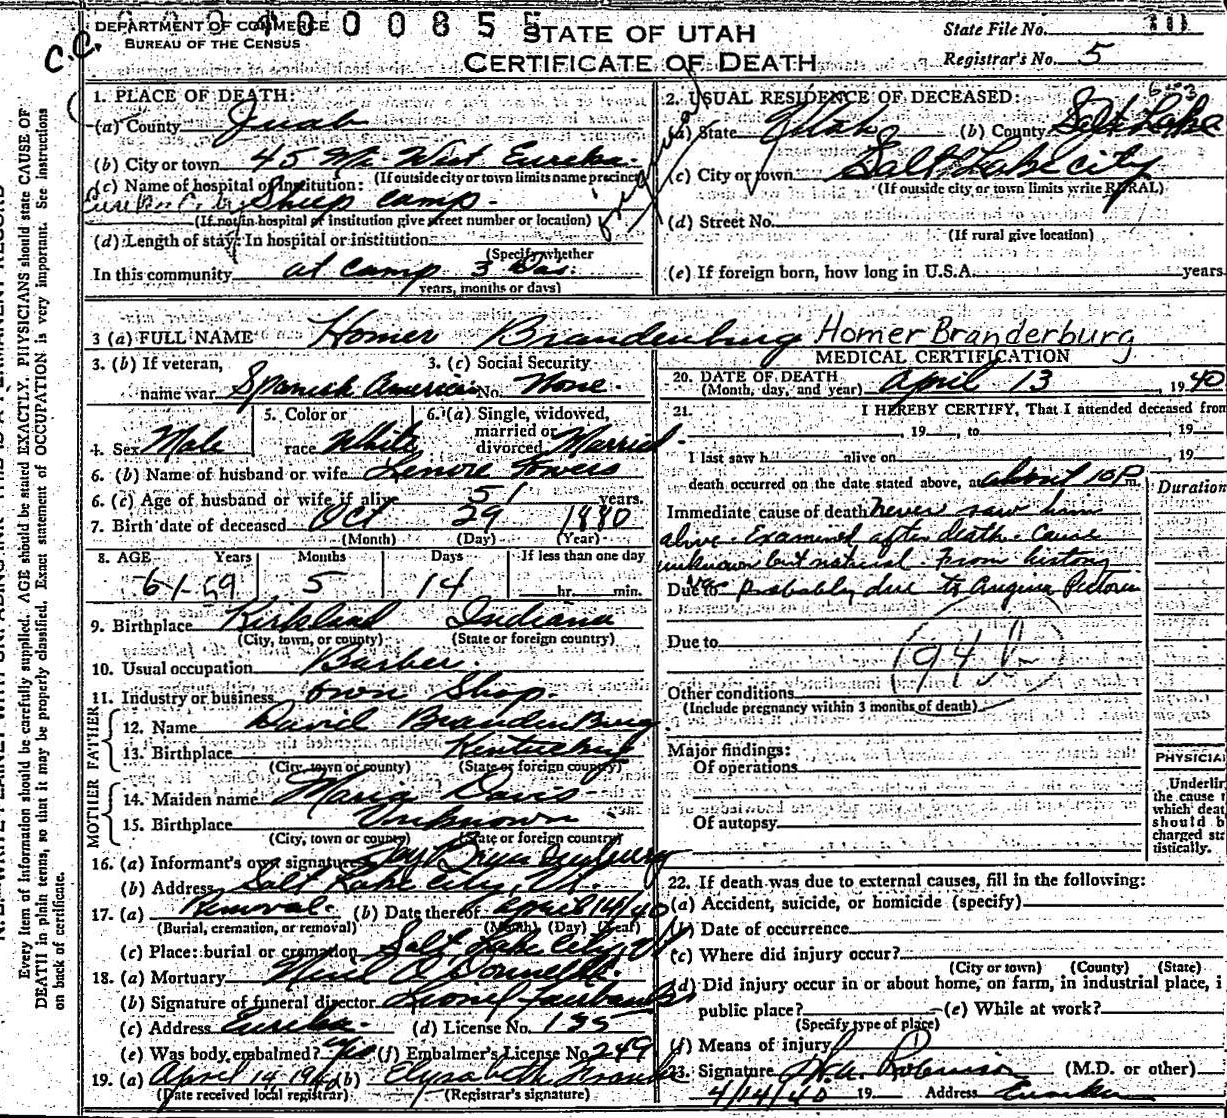 DEPARTMENT OF COMMERCE
BUREAU OF THE CENSUS
0 0 0 8 5 5
STATE OF UTAH
CERTIFICATE OF DEATH
State File No.
Registrar's No. 5
C.C.
1. PLACE OF DEATH:
(a) County Juab
(b) City or town 45 Mi. West Eureka
(If outside city or town limits name precinct
(c) Name of hospital or institution:
Sheep Camp.
(If not in hospital or institution give street number or location)
(d) Length of stay: In hospital or institution
(Specify whether
In this community at Camp 3 Das.
years, months or days)
2. USUAL RESIDENCE OF DECEASED:
(a) State Utah (b) County Salt Lake
(c) City or town Salt Lake City
(If outside city or town limits write RURAL)
(d) Street No.
(If rural give location)
(e) If foreign born, how long in U.S.A. years
3 (a) FULL NAME Homer Brandenburg Homer Branderburg
3. (b) If veteran, name war Spanish American
3. (c) Social Security No. None.
4. Sex Male
5. Color or race White
6. (a) Single, widowed, married or divorced Married
6. (b) Name of husband or wife Lenore Towers
6. (c) Age of husband or wife if alive 51 years.
7. Birth date of deceased Oct 29 1880
(Month) (Day) (Year)
8. AGE Years Months Days If less than one day
61 59 5 14 hr. min.
9. Birthplace Kirkland Indiana
(City, town, or county) (State or foreign country)
10. Usual occupation Barber.
11. Industry or business own Shop.
FATHER
12. Name David BrandenBurg
13. Birthplace Kentucky
(City, town or county) (State or foreign country)
MOTHER
14. Maiden name Maria Davis
15. Birthplace Unknown
(City, town or county) (State or foreign country)
16. (a) Informant's own signature
(b) Address Salt Lake City, Ut.
17. (a) Removal. (b) Date thereof April 14/40
(Burial, cremation, or removal) (Month) (Day) (Year)
(c) Place: burial or cremation Salt Lake City, Ut
18. (a) Mortuary Neil O'Donnell.
(b) Signature of funeral director Lionel Fairbanks
(c) Address Eureka. (d) License No. 135
(e) Was body embalmed? Yes (f) Embalmer's License No. 249
19. (a) April 14, 1940 (b) Elyzabeth
(Date received local registrar) (Registrar's signature)
MEDICAL CERTIFICATION
20. DATE OF DEATH April 13, 1940
(Month, day, and year)
21. I HEREBY CERTIFY, That I attended deceased from
, 19 , to , 19
I last saw h alive on , 19
death occurred on the date stated above, at about 10 P m.
Duration
Immediate cause of death Never saw him
alive. Examined after death. Cause
unknown but natural. From history
Due to Probably due to Angina Pectoris
Due to
94b
Other conditions
(Include pregnancy within 3 months of death)
Major findings:
Of operations
Of autopsy
PHYSICIA
Underlin
the cause
which deat
should b
charged sta
tistically.
22. If death was due to external causes, fill in the following:
(a) Accident, suicide, or homicide (specify)
(b) Date of occurrence
(c) Where did injury occur?
(City or town) (County) (State)
(d) Did injury occur in or about home, on farm, in industrial place, i
public place? (e) While at work?
(Specify type of place)
(f) Means of injury
23. Signature Robinson (M.D. or other)
4/14/40 19 Address Eureka
Every item of information should be carefully supplied. AGE should be stated EXACTLY. PHYSICIANS should state CAUSE OF
DEATH in plain terms, so that it may be properly classified. Exact statement of OCCUPATION is very important. See instructions
on back of certificate.